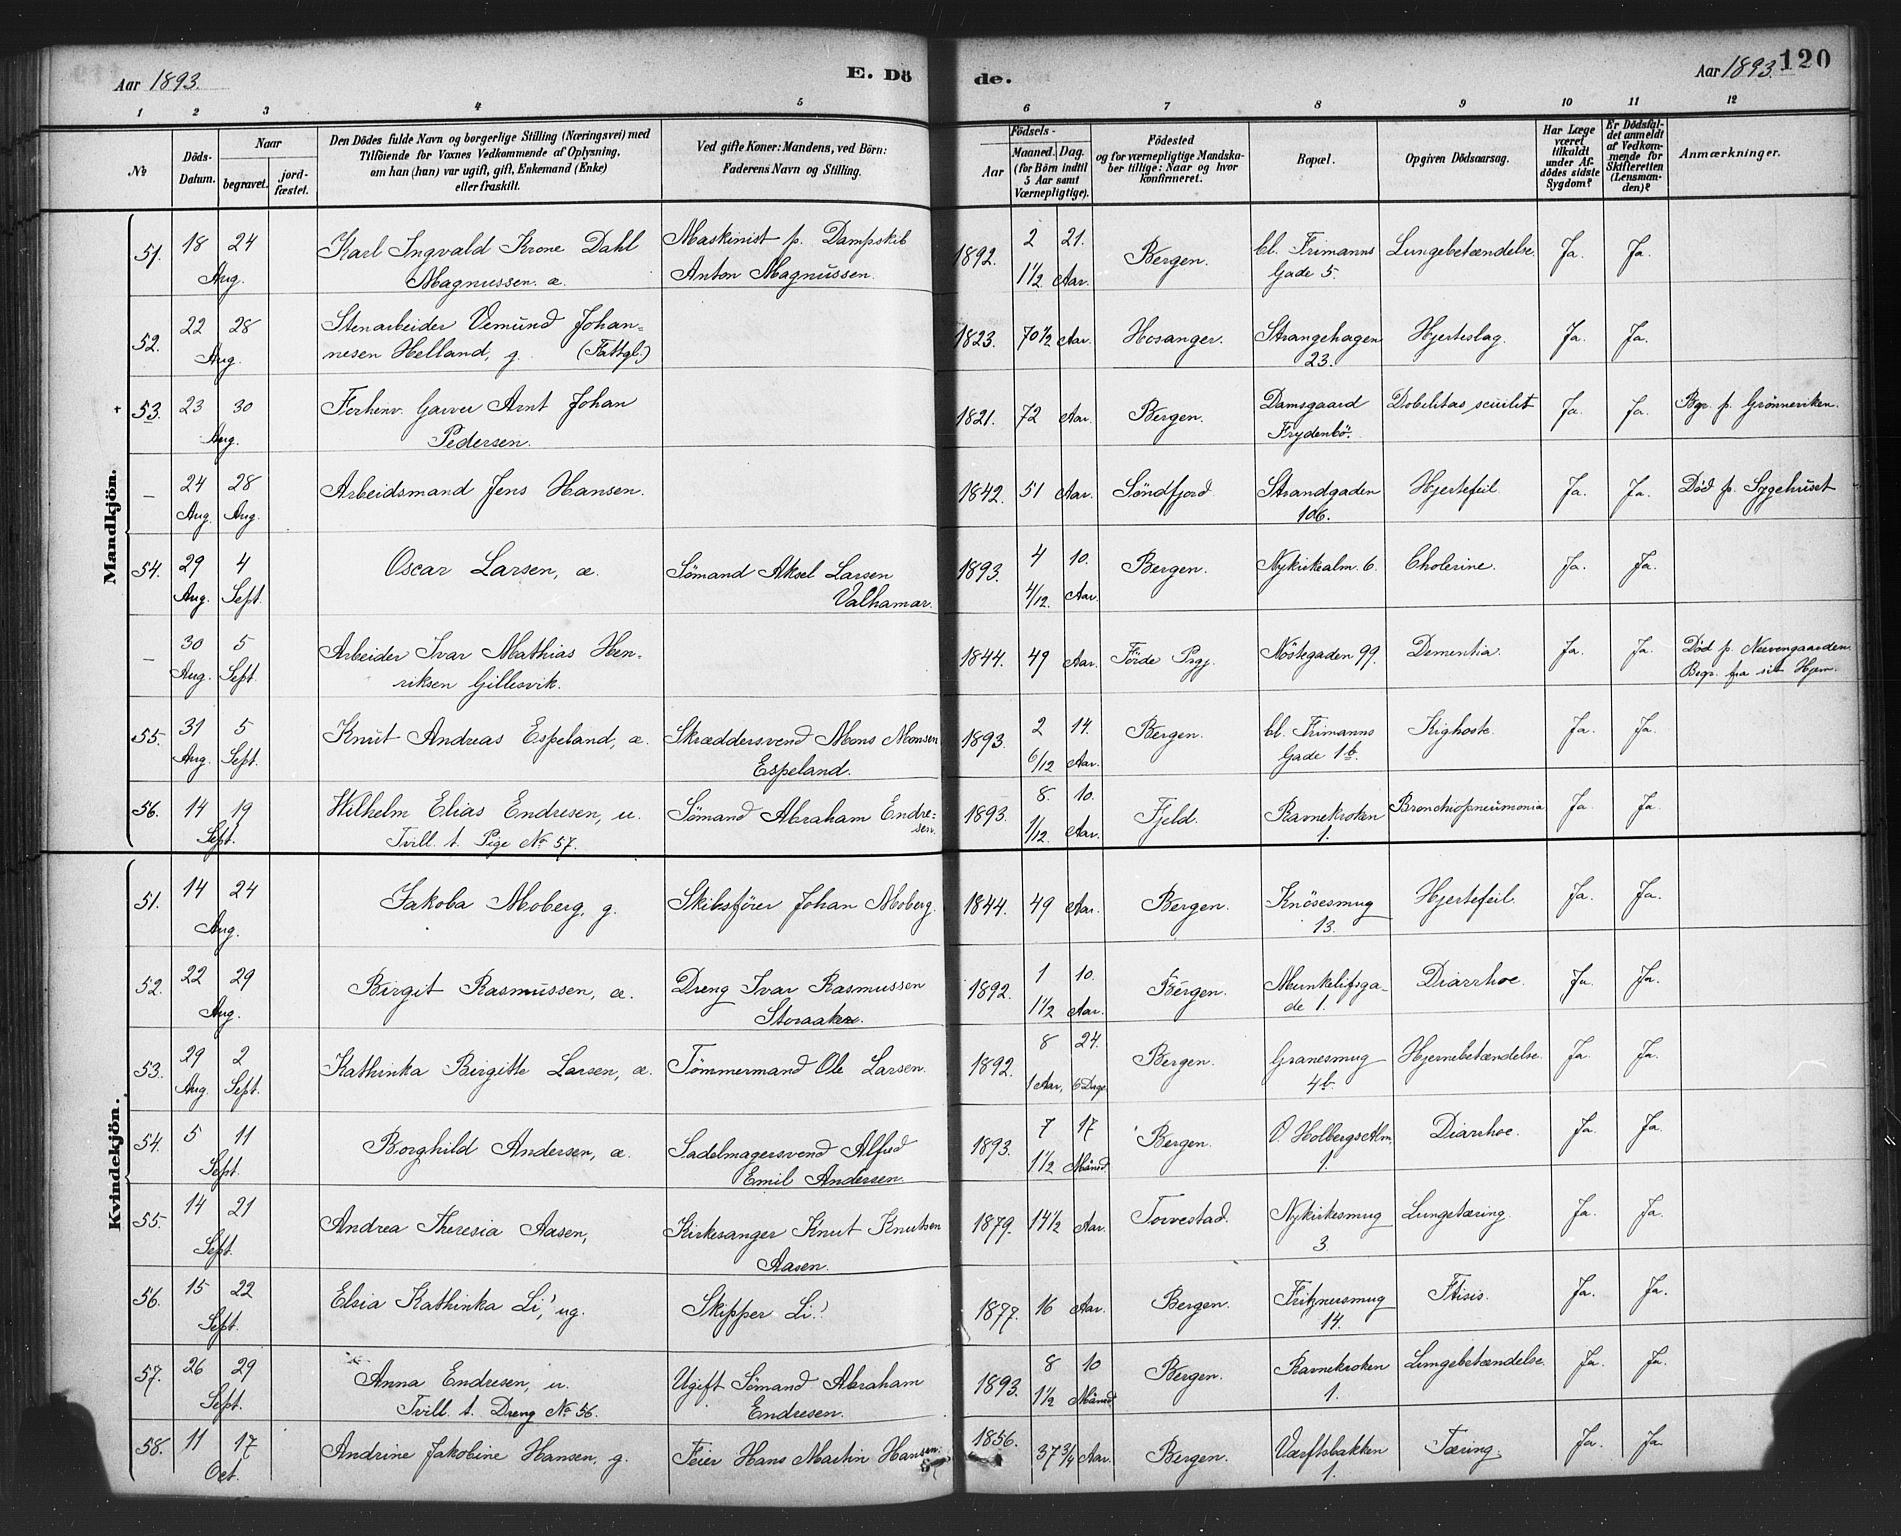 Aar 1893.
E. Dö
de.
Aar 1893.
120
1 2 3 4 5 6 7 8 9 10 11 12
No
Döds-
Datum.
Naar
begravet.
jord-
fæstet.
Den Dödes fulde Navn og borgerlige Stilling (Næringsvei) med
Tilföiende for Voxnes Vedkommende af Oplysning,
om han (hun) var ugift, gift, Enkemand (Enke)
eller fraskilt.
Ved gifte Koner: Mandens, ved Börn:
Faderens Navn og Stilling.
Födsels-
Aar
Maaned. Dag.
(for Börn indtil
5 Aar samt
Værnepligtige).
Födested
og for værnepligtige Mandska-
ber tillige: Naar og hvor
konfirmeret.
Bopæl.
Opgiven Dödsaarsag.
Har Læge
været
tilkaldt
under Af-
dödes sidste
Sygdom?
Er Dödsfal-
det anmeldt
af Vedkom-
mende for
Skifteretten
(Lensman-
den)?
Anmærkninger.
Mandkjön.
51. 18 24 Karl Ingvald Krone Dahl Maskinist p. Dampskib 1892. 2 21. Bergen. Cl. Frimanns Lungebetændelse. Ja. Ja.
Aug. Magnussen. æ. Anton Magnussen. 1 1/2 Aar. Gade 5.
52. 22 28 Stenarbeider Vemund Johan- 1823. 70 1/2 Aar. Hosanger. Strangehagen Hjerteslag. Ja. Ja.
Aug. nesen Helland, g. (Fattgl.) 23.
+ 53. 23 30 Forhenv. Garver Arnt Johan 1821. 72 Aar. Bergen. Damsgaard Dobelitas senilit Ja. Ja. Bgr. p. Grönneviken.
Aug. Pedersen. Frydenbö.
– 24 28 Arbeidsmand Jens Hansen. 1842. 51 Aar. Söndfjord. Strandgaden Hjertefeil. Ja. Ja. Död p. Sygehuset
Aug. Aug. 106.
54. 29 4 Oscar Larsen, æ. Sömand Aksel Larsen 1893. 4 10. Bergen. Nykirkealm. 6. Cholerine. Ja. Ja.
Aug. Sept. Valhamar. 4/12. Aar.
– 30 5 Arbeider Ivar Mathias Hen- 1844. 49 Aar. Förde Prgj. Nöstegaden 99. Dementia. Ja. Ja. Död p. Neevengaarden.
Aug. Sept. riksen Gillesvik. Begr. fra sit Hjem.
55. 31 5 Knut Andreas Espeland, æ. Skræddersvend Mons Monsen 1893. 2 14. Bergen. Cl. Frimanns Kighoste. Ja. Ja.
Aug. Sept. Espeland. 6/12 Aar. Gade 1b.
56. 14 19 Wilhelm Elias Endresen, u. Sömand Abraham Endre- 1893. 8. 10. Fjeld. Ravnekroken Bronchiopneumonia Ja. Ja.
Sept. Tvill. t. Pige No 57. sen. 1/12 Aar. 1.
Kvindekjön.
51. 14 24 Jakoba Moberg, g. Skibsförer Johan Moberg. 1844. 49 Aar. Bergen. Knösesmug Hjertefeil. Ja. Ja.
Aug. 13.
52. 22 29 Birgit Rasmussen, æ. Dreng Ivar Rasmussen 1892. 1 10. Bergen. Munkelifsga- Diarrhoe. Ja. Ja.
Aug. Storaaker. 1 1/2 Aar. de 1.
53. 29 2 Kathinka Birgitte Larsen, æ. Tömmermand Ole Larsen. 1892. 8 24. Bergen. Granesmug Hjernebetændelse. Ja. Ja.
Aug. Sept. 1 Aar, 6 Dage 4b.
54. 5 11 Borghild Andersen, æ. Sadelmagersvend Alfred 1893. 7 17 Bergen. O. Holbergs Alm. Diarrhoe. Ja. Ja.
Sept. Emil Andersen. 1 1/2 Maned. 1.
55. 14 21 Andrea Theresia Aasen, Kirkesanger Knut Knutsen 1879. 14 1/2 Aar. Torvestad. Nykirkesmug Lungetæring. Ja. Ja.
Sept. Aasen. 3.
56. 15 22 Elsia Kathinka Li, ug. Skipper Li. 1877. 16 Aar. Bergen. Fritznersmug Ftisis. Ja. Ja.
Sept. 14.
57. 26 29 Anna Endresen, u. Ugift Sömand Abraham 1893. 8 10 Bergen. Ravnekroken Lungebetændelse. Ja. Ja.
Sept. Tvill. t. Dreng No 56. Endresen. 1 1/2 Maned 1.
58. 11 17 Andrine Jakobine Hansen, g. Feier Hans Martin Hansen. 1856. 37 3/4 Aar. Bergen. Værftsbakken Tæring. Ja. Ja.
Oct. 1.